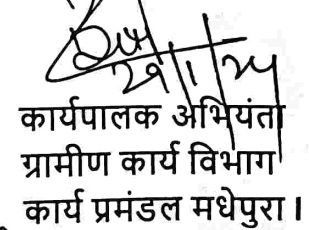 कार्यपालक अभियंता
ग्रामीण कार्य विभाग
कार्य प्रमंडल मधेपुरा।